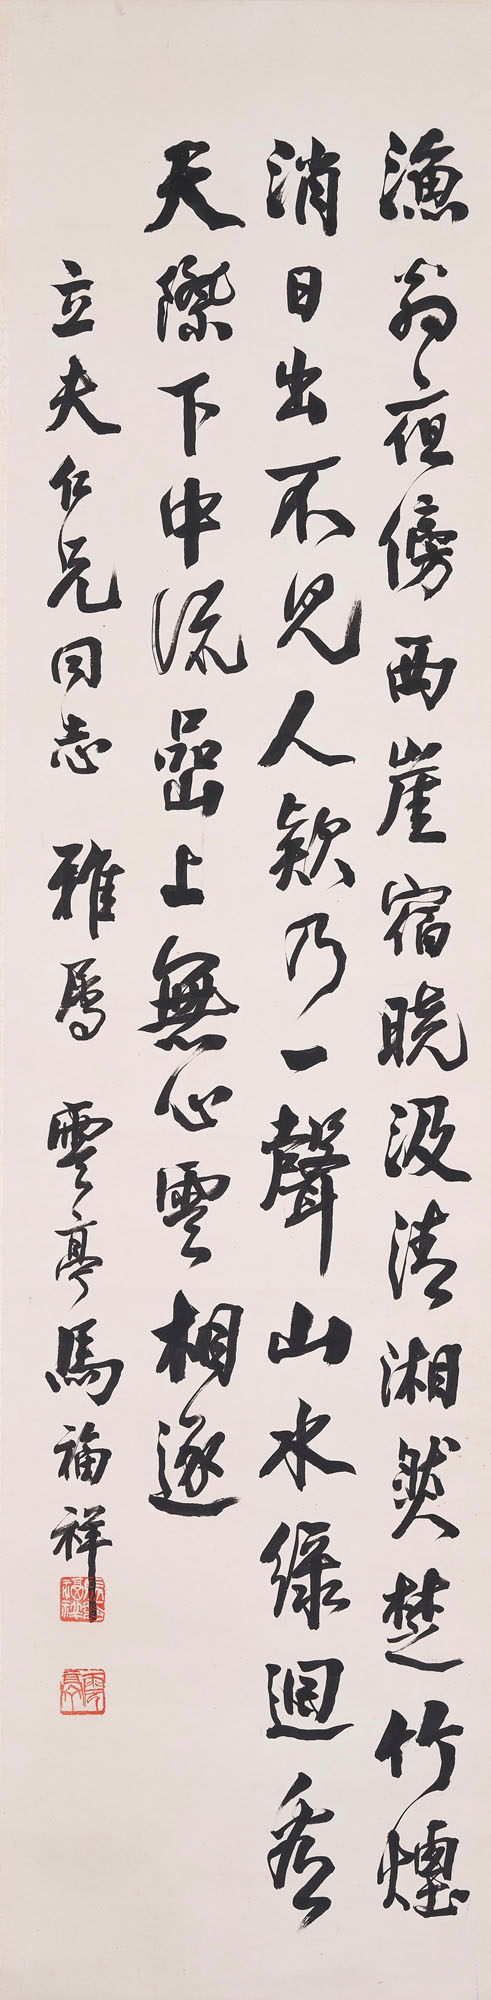 漁翁夜傍西崖宿曉汲清湘然楚竹煙
消日出不見人欸乃一聲山水綠迴看
天際下中流嵒上無心雲相逐
立夫仁兄同志 雅属 雲亭馬福祥
雲亭